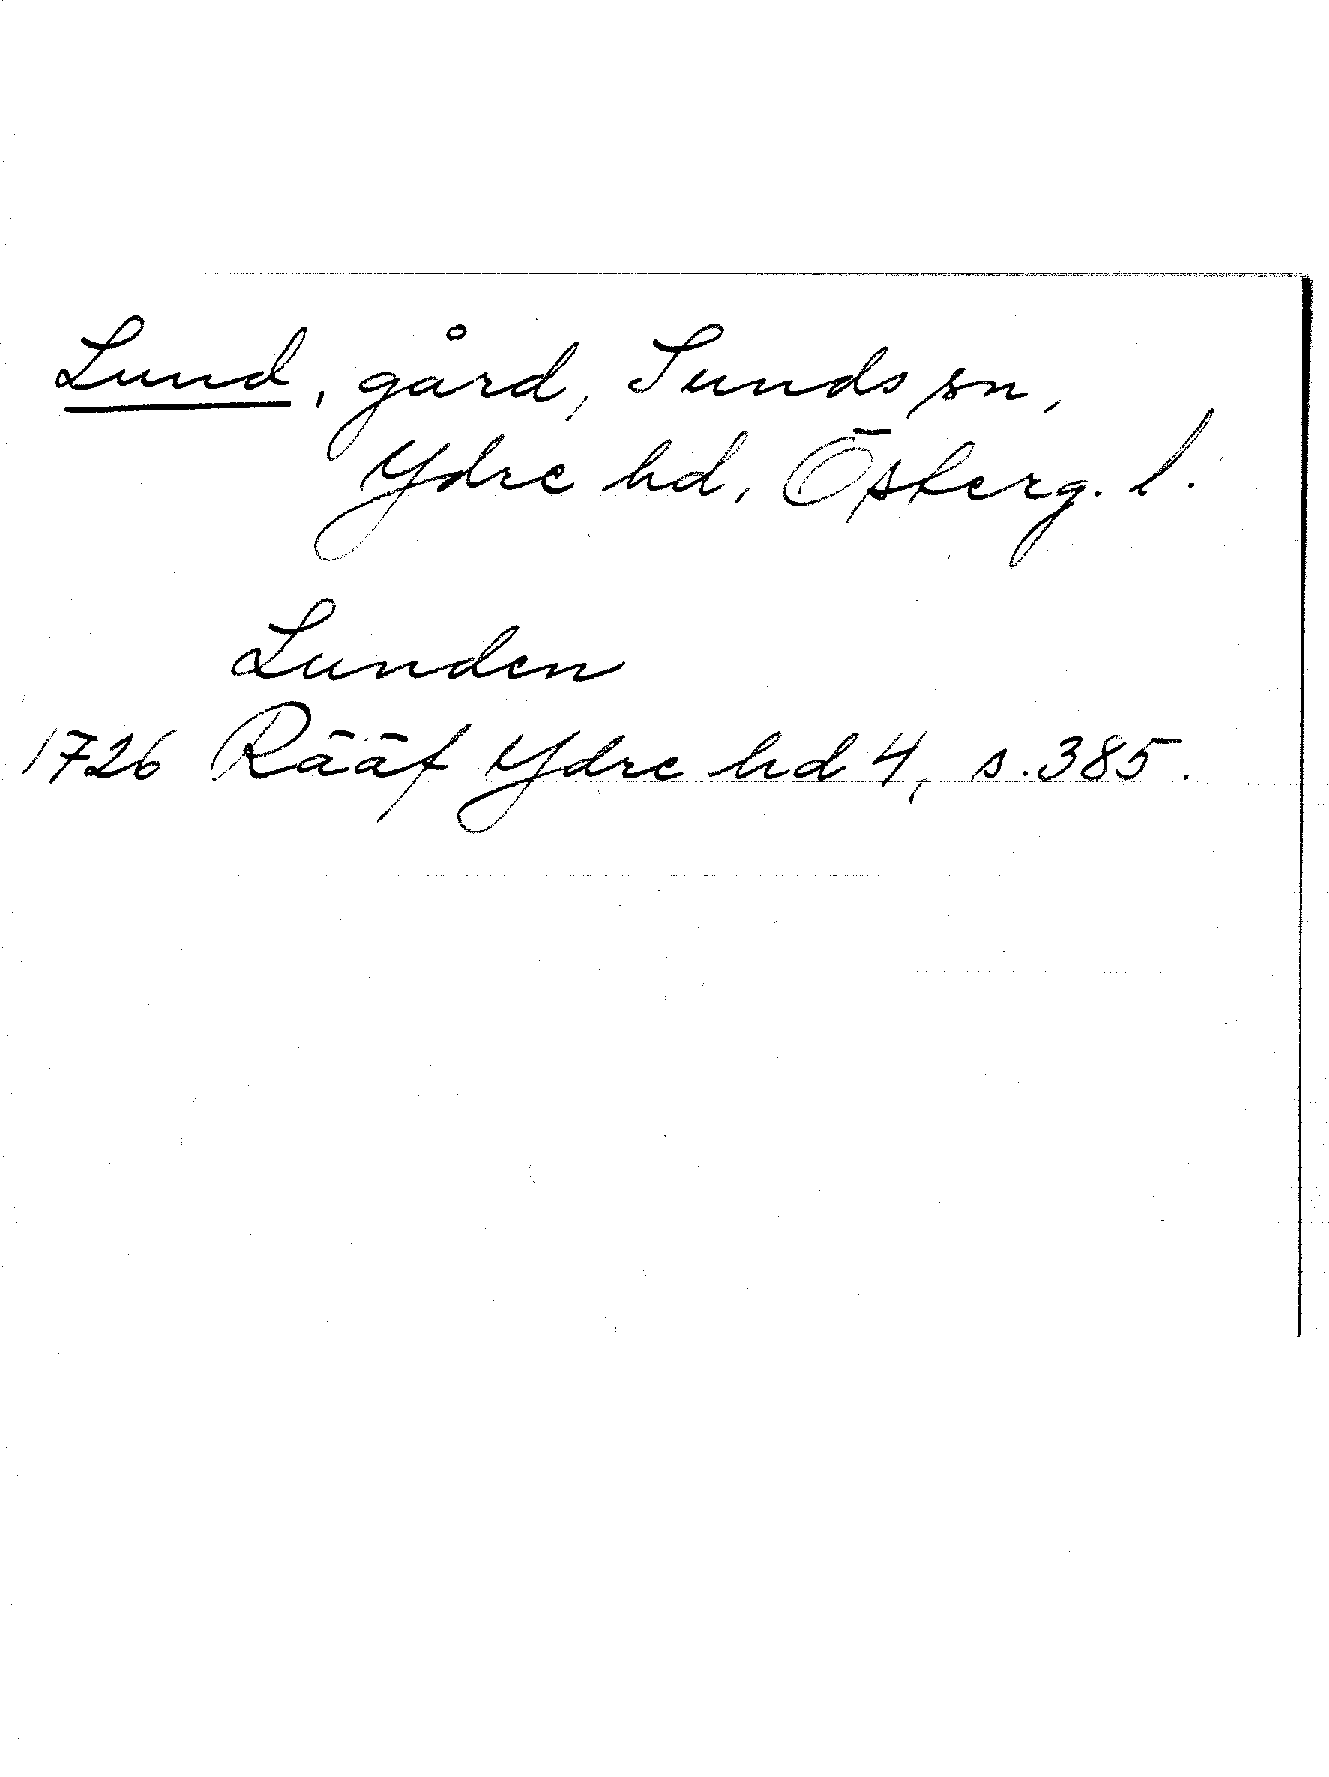 Lund, gård, Sunds sn,
Ydre hd, Österg. l.
Lunden
1726 Rääf Ydre hd 4, s. 385.